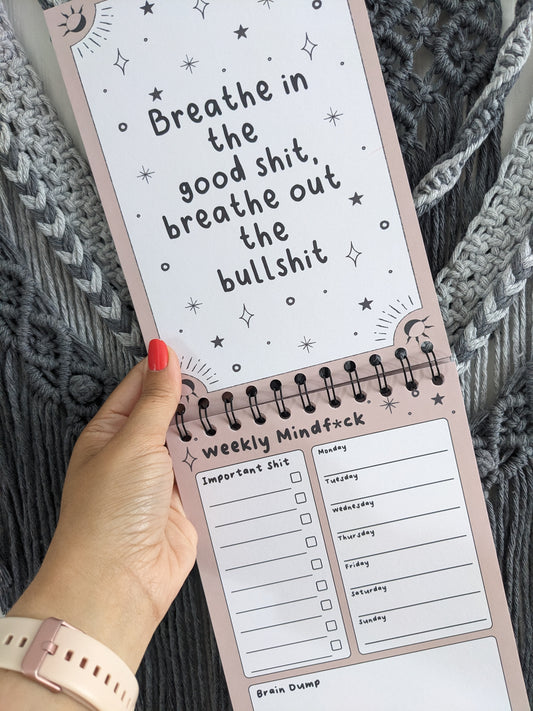 Breathe in
the
good shit,
breathe out
the
bullshit
Weekly Mindf*ck
Important Shit
Monday
Tuesday
Wednesday
Thursday
Friday
Saturday
Sunday
Brain Dump